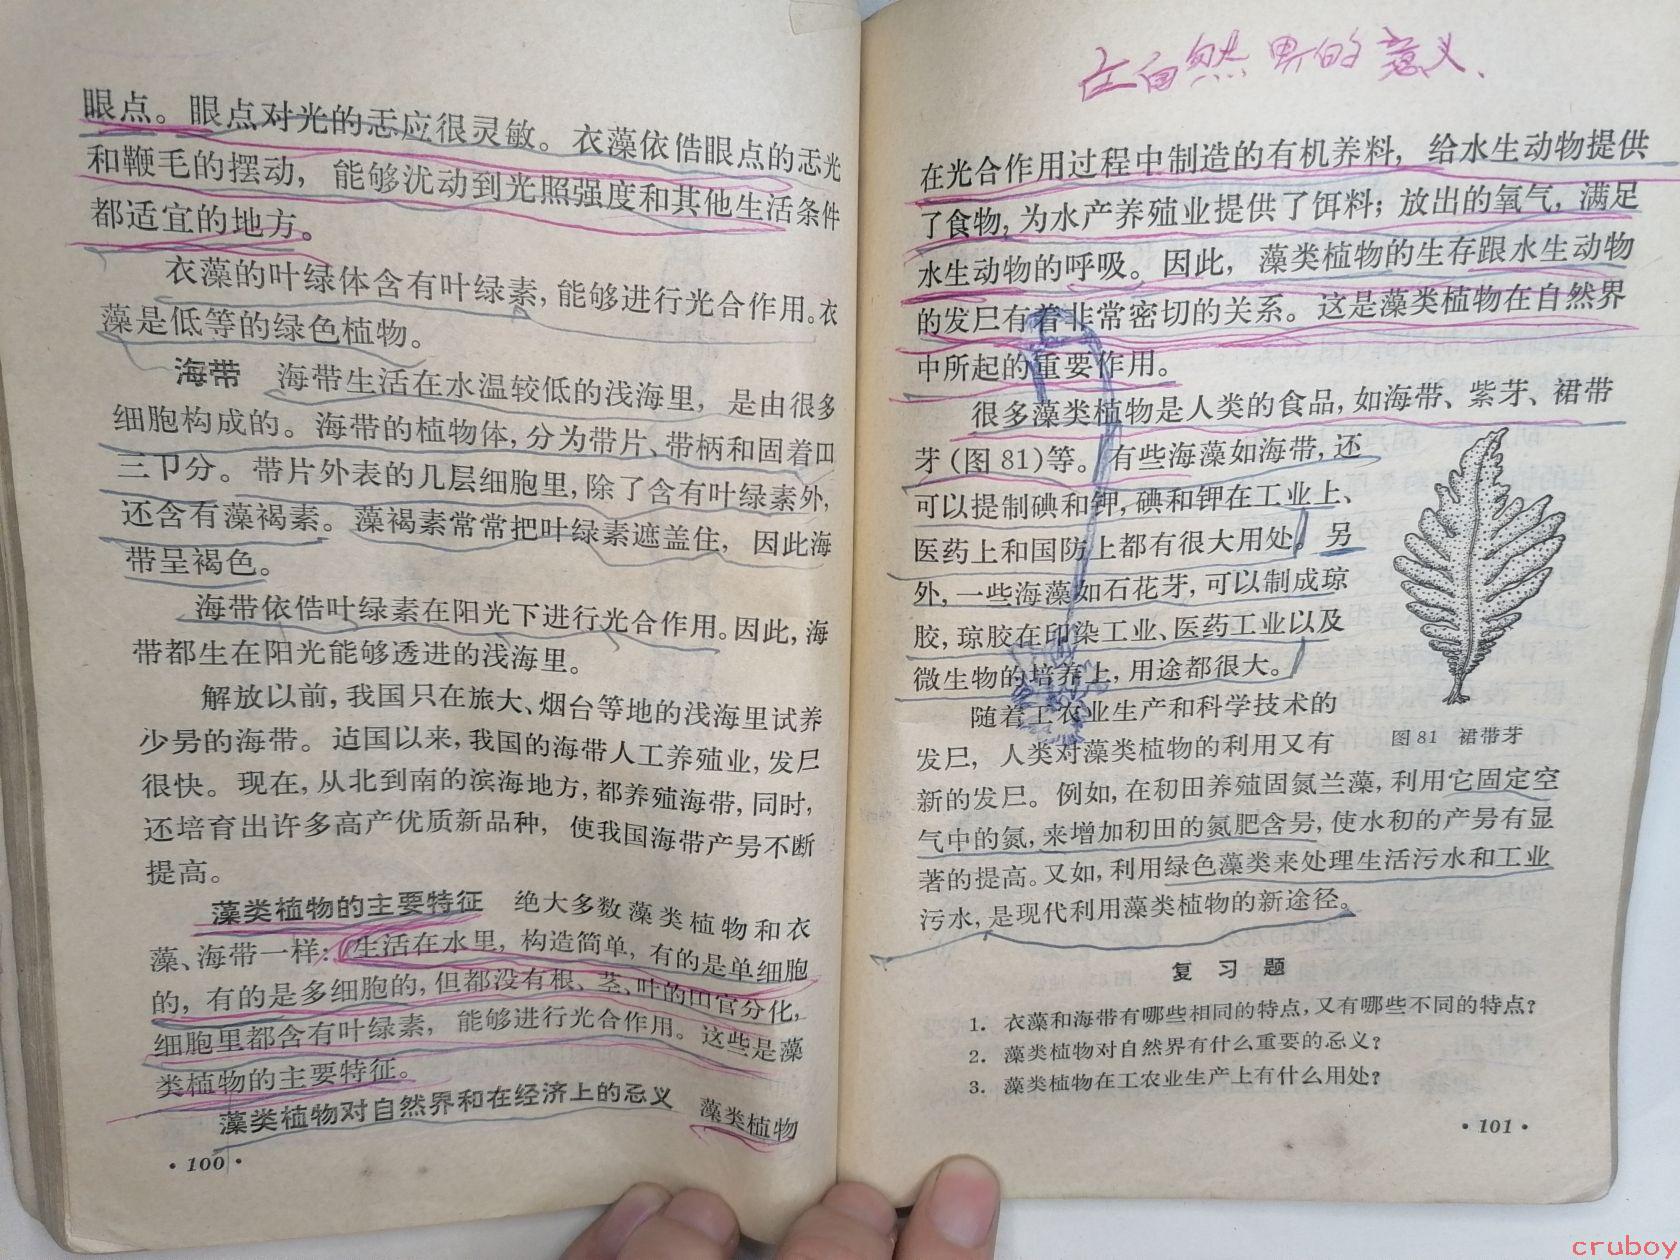 眼点。眼点对光的感应很灵敏。衣藻依借眼点的感光
和鞭毛的摆动，能够游动到光照强度和其他生活条件
都适宜的地方。
衣藻的叶绿体含有叶绿素，能够进行光合作用。衣
藻是低等的绿色植物。
海带　海带生活在水温较低的浅海里，是由很多
细胞构成的。海带的植物体，分为带片、带柄和固着器
三卩分。带片外表的几层细胞里，除了含有叶绿素外，
还含有藻褐素。藻褐素常常把叶绿素遮盖住，因此海
带呈褐色。
海带依借叶绿素在阳光下进行光合作用。因此，海
带都生在阳光能够透进的浅海里。
解放以前，我国只在旅大、烟台等地的浅海里试养
少量的海带。迠国以来，我国的海带人工养殖业，发展
很快。现在，从北到南的滨海地方，都养殖海带，同时，
还培育出许多高产优质新品种，使我国海带产量不断
提高。
藻类植物的主要特征　绝大多数藻类植物和衣
藻、海带一样：生活在水里，构造简单，有的是单细胞
的，有的是多细胞的，但都没有根、茎、叶的器官分化，
细胞里都含有叶绿素，能够进行光合作用。这些是藻
类植物的主要特征。
藻类植物对自然界和在经济上的意义　藻类植物
·100·
在自然界的意义、
在光合作用过程中制造的有机养料，给水生动物提供
了食物，为水产养殖业提供了饵料；放出的氧气，满足
水生动物的呼吸。因此，藻类植物的生存跟水生动物
的发展有着非常密切的关系。这是藻类植物在自然界
中所起的重要作用。
很多藻类植物是人类的食品，如海带、紫菜、裙带
菜（图 81）等。有些海藻如海带，还
可以提制碘和钾，碘和钾在工业上、
医药上和国防上都有很大用处。另
外，一些海藻如石花菜，可以制成琼
胶，琼胶在印染工业、医药工业以及
微生物的培养上，用途都很大。
图 81　裙带菜
随着工农业生产和科学技术的
发展，人类对藻类植物的利用又有
新的发展。例如，在稻田养殖固氮兰藻，利用它固定空
气中的氮，来增加稻田的氮肥含量，使水稻的产量有显
著的提高。又如，利用绿色藻类来处理生活污水和工业
污水，是现代利用藻类植物的新途径。
复习题
1. 衣藻和海带有哪些相同的特点，又有哪些不同的特点？
2. 藻类植物对自然界有什么重要的意义？
3. 藻类植物在工农业生产上有什么用处？
·101·
cruboy